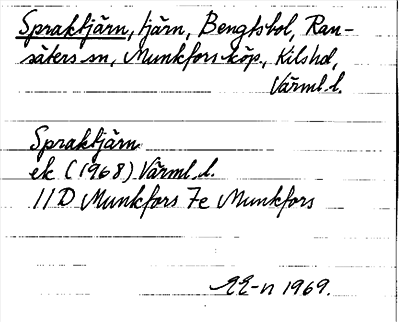 Spraktjärn, tjärn, Bengtsbol, Ran-
säters sn, Munkfors köp., Kils hd,
Värml. l.
Spraktjärn
ek (1968) Värml. l.
11D Munkfors 7e Munkfors
EE-n 1969.